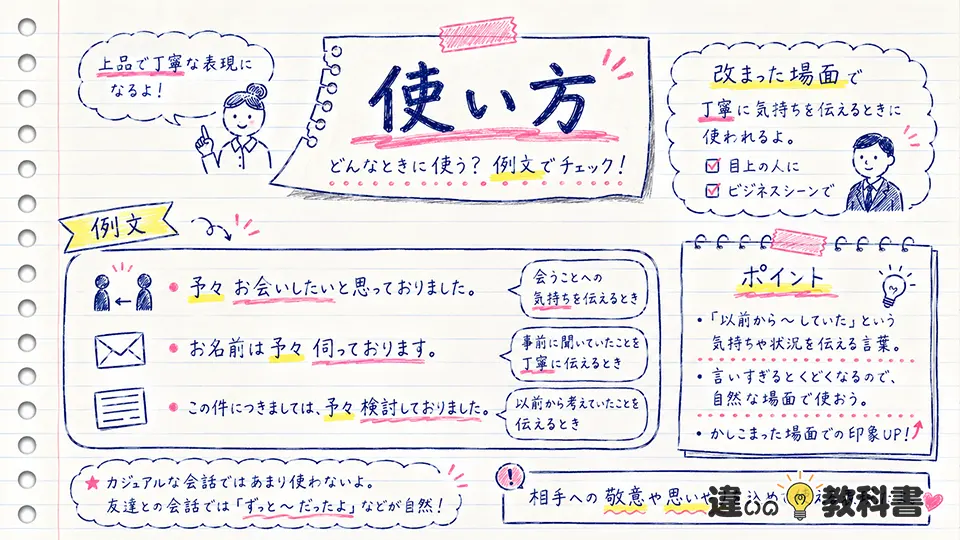 上品で丁寧な表現に
なるよ！
使い方
どんなときに使う？ 例文でチェック！
改まった場面で
丁寧に気持ちを伝えるときに
使われるよ。
目上の人に
ビジネスシーンで
例文
・予々 お会いしたいと思っておりました。
会うことへの
気持ちを伝えるとき
・お名前は 予々 伺っております。
事前に聞いていたことを
丁寧に伝えるとき
・この件につきましては、予々 検討しておりました。
以前から考えていたことを
伝えるとき
ポイント
・「以前から～していた」という
気持ちや状況を伝える言葉。
・言いすぎるとくどくなるので、
自然な場面で使おう。
・かしこまった場面での印象UP！
★ カジュアルな会話ではあまり使わないよ。
友達との会話では「ずっと～だったよ」などが自然！
! 相手への 敬意や思いや
違いの教科書